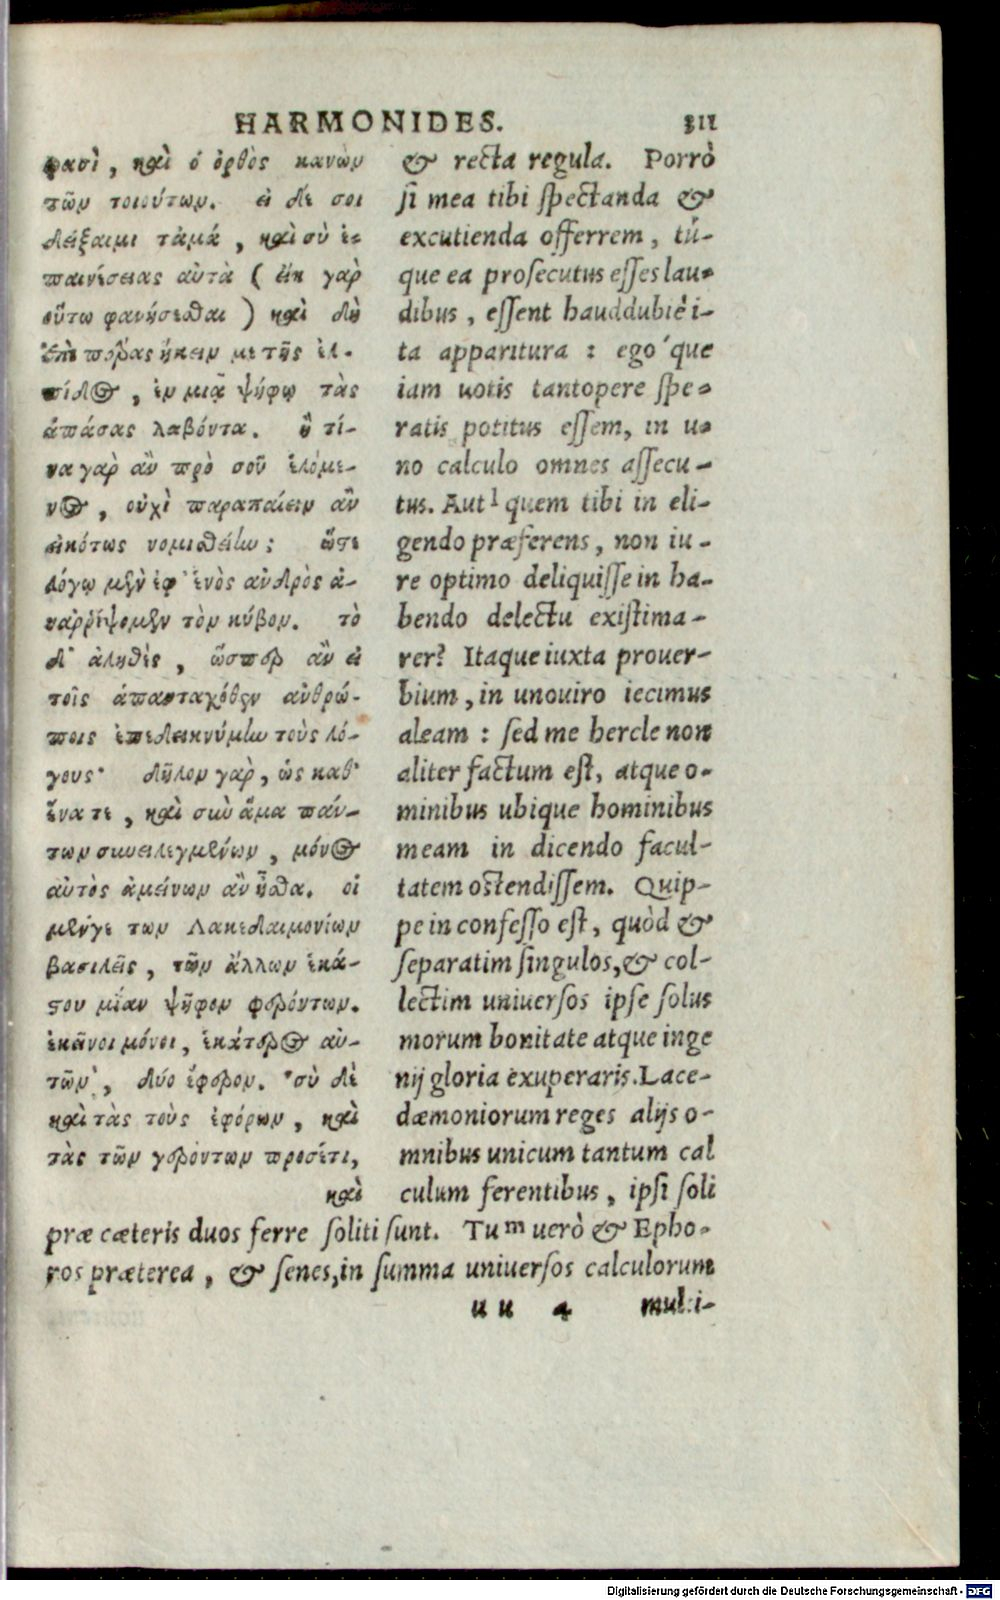 HARMONIDES. 311
φασὶ, καὶ ὁ ὀρθὸς κανὼν
τῶν τοιούτων. εἰ δέ σοι
δείξαιμι τἀμά, καὶ σὺ ἐ-
παινέσειας αὐτὰ ( εἰη γὰρ
οὕτω φανήσεσθαι ) καὶ δὴ
ἐπὶ πέρας ἥκειν με τῆς ἐλ-
πίδος, ἐν μιᾷ ψήφῳ τὰς
ἁπάσας λαβόντα. ἢ τί-
να γὰρ ἂν πρὸ σοῦ ἑλόμε-
νος, οὐχὶ παραπαίειν ἂν
εἰκότως νομισθείην; ὥστε
λόγῳ μὲν ἐφ' ἑνὸς ἀνδρὸς ἀ-
ναῤῥίψομεν τὸν κύβον. τὸ
δ' ἀληθὲς, ὥσπερ ἂν εἰ
τοῖς ἁπανταχόθεν ἀνθρώ-
ποις ἐπεδεικνύμην τοὺς λό-
γους· δῆλον γὰρ, ὡς καθ'
ἕνα τε, καὶ σὺν ἅμα πάν-
των συνειλεγμένων, μόνος
αὐτὸς ἀμείνων ἂν ἦσθα. οἱ
μένγε των Λακεδαιμονίων
βασιλεῖς, τῶν ἄλλων ἑκά-
στου μίαν ψῆφον φερόντων.
ἐκεῖνοι μόνοι, ἑκάτερος αὐ-
τῶν, δύο ἔφερον. σὺ δὲ
καὶ τὰς τοὺς ἐφόρων, καὶ
τὰς τῶν γερόντων προσέτι,
καὶ
& recta regula. Porrò
si mea tibi spectanda &
excutienda offerrem, tú-
que ea prosecutus esses lau-
dibus, essent hauddubiè i-
ta apparitura : ego´que
iam uotis tantopere spe-
ratis potitus essem, in u-
no calculo omnes assecu-
tus. Aut l quem tibi in eli-
gendo præferens, non iu-
re optimo deliquisse in ha-
bendo delectu existima-
rer? Itaque iuxta prouer-
bium, in uno uiro iecimus
aleam : sed me hercle non
aliter factum est, atque o-
minibus ubique hominibus
meam in dicendo facul-
tatem ostendissem. Quip-
pe in confesso est, quòd &
separatim singulos, & col-
lectim uniuersos ipse solus
morum bonitate atque inge
nij gloria exuperaris. Lace-
dæmoniorum reges alijs o-
mnibus unicum tantum cal
culum ferentibus, ipsi soli
præ cæteris duos ferre soliti sunt. Tu m uerò & Epho-
ros præterea, & senes, in summa uniuersos calculorum
uu 4 multi-
Digitalisierung gefördert durch die Deutsche Forschungsgemeinschaft - DFG